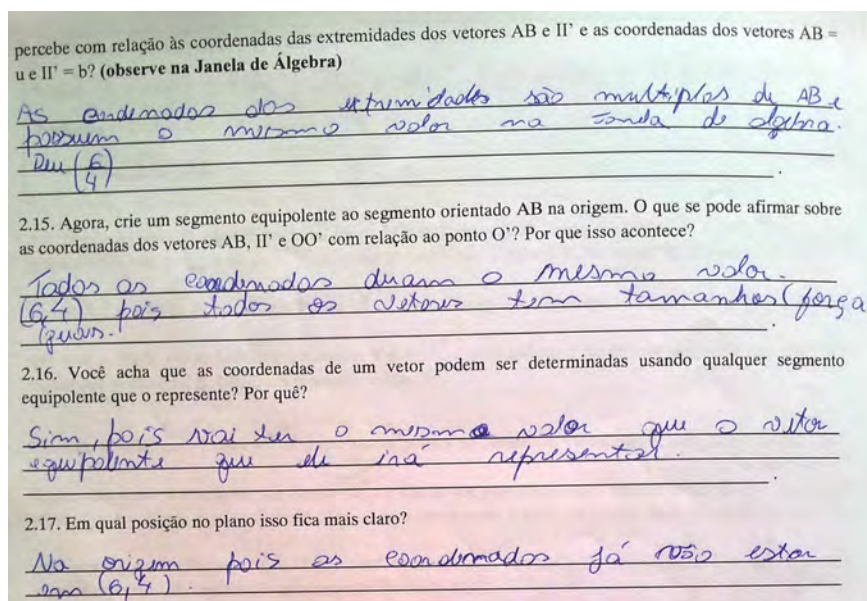 percebe com relação às coordenadas das extremidades dos vetores AB e II' e as coordenadas dos vetores AB =
u e II' = b? (observe na Janela de Álgebra)
As coordenadas das extremidades são multiplos de AB e
possuem o mesmo valor na Janela de algebra.
Deu (6
4)
2.15. Agora, crie um segmento equipolente ao segmento orientado AB na origem. O que se pode afirmar sobre
as coordenadas dos vetores AB, II' e OO' com relação ao ponto O'? Por que isso acontece?
Todas as coordenadas deram o mesmo valor.
(6,4) pois todos os vetores tem tamanhos (força
iguais.
2.16. Você acha que as coordenadas de um vetor podem ser determinadas usando qualquer segmento
equipolente que o represente? Por quê?
Sim, pois vai ter o mesmo valor que o vetor
equipolente que ele irá representar.
2.17. Em qual posição no plano isso fica mais claro?
Na origem pois as coordenadas já vão estar
em (6,4).